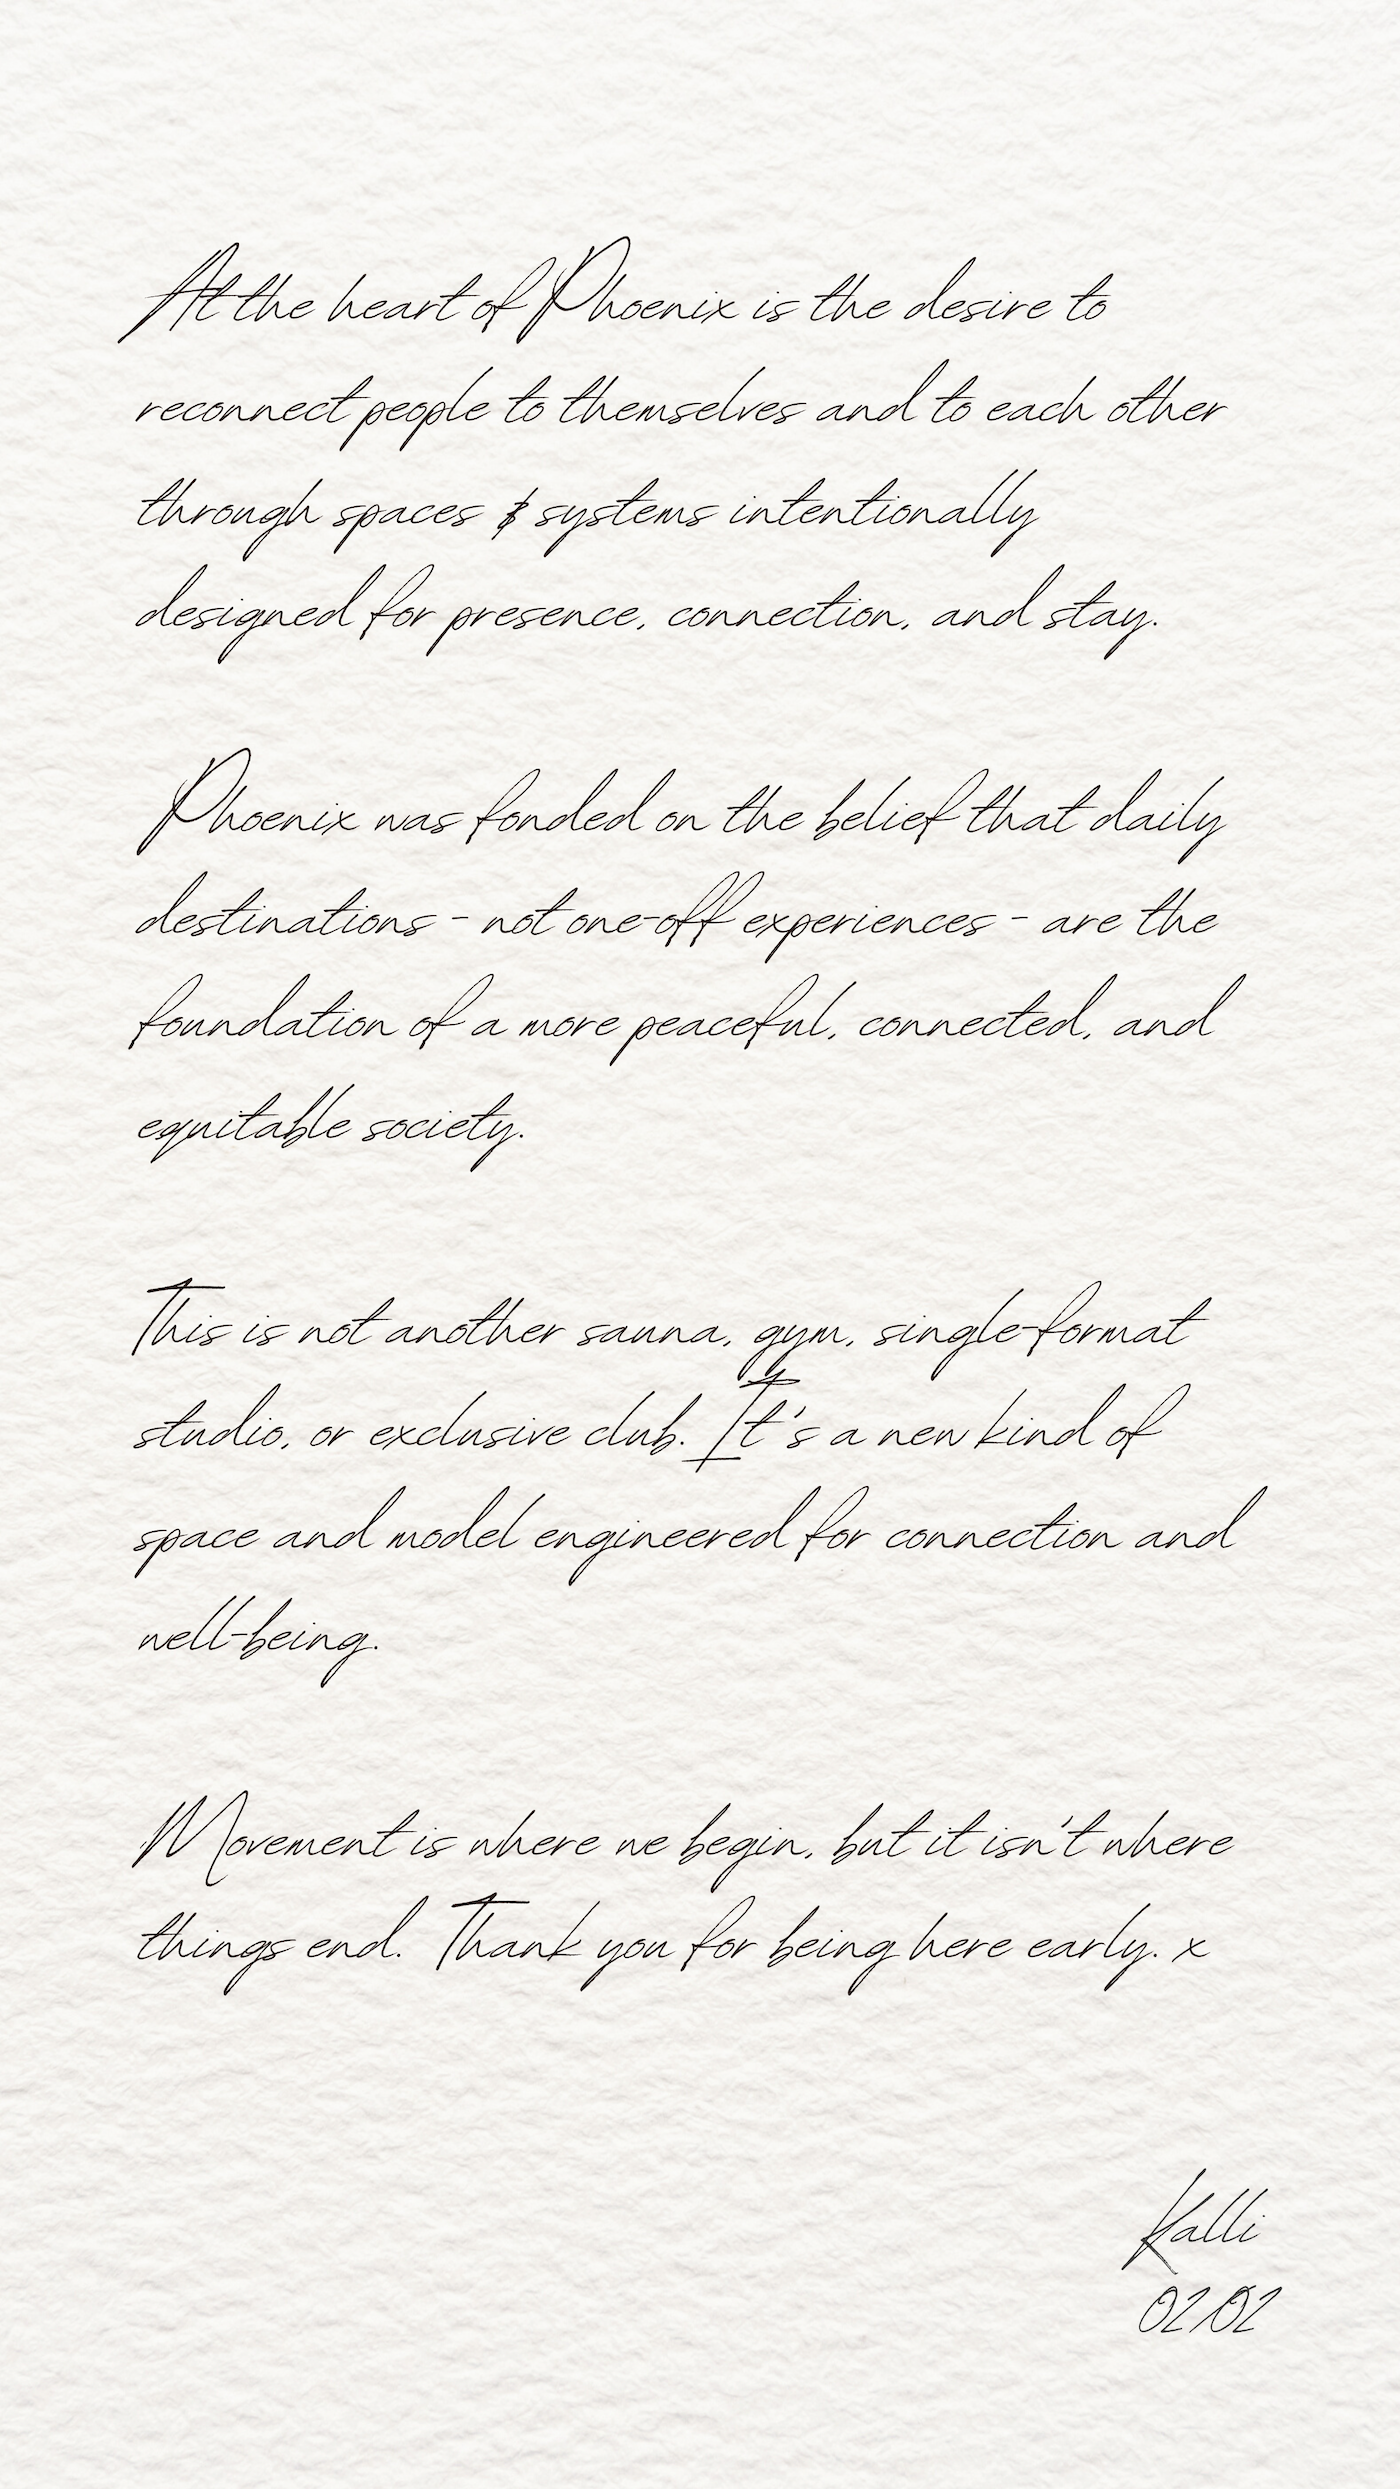 At the heart of Phoenix is the desire to
reconnect people to themselves and to each other
through spaces & systems intentionally
designed for presence, connection, and stay.
Phoenix was fonded on the belief that daily
destinations - not one-off experiences - are the
foundation of a more peaceful, connected, and
equitable society.
This is not another sauna, gym, single-format
studio, or exclusive club. It's a new kind of
space and model engineered for connection and
well-being.
Movement is where we begin, but it isn't where
things end. Thank you for being here early. x
Kalli
02/02